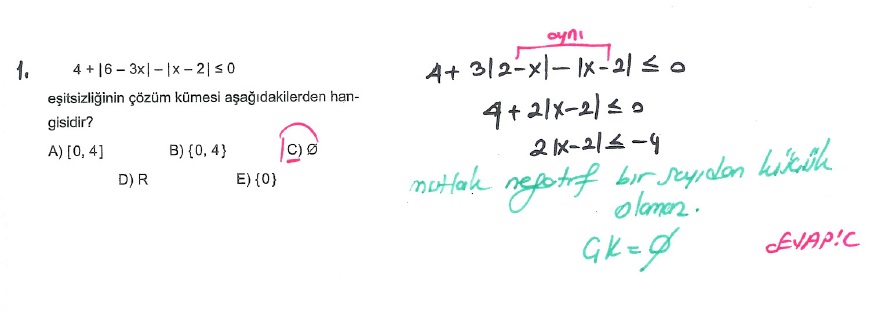 1. 4 + |6 – 3x| – |x – 2| ≤ 0
eşitsizliğinin çözüm kümesi aşağıdakilerden han-
gisidir?
A) [0, 4] B) {0, 4} C) Ø
D) R E) {0}
aynı
4 + 3|2-x| - |x-2| ≤ 0
4 + 2|x-2| ≤ 0
2|x-2| ≤ -4
mutlak negatif bir sayıdan küçük
olamaz.
ÇK = Ø
CEVAP:C